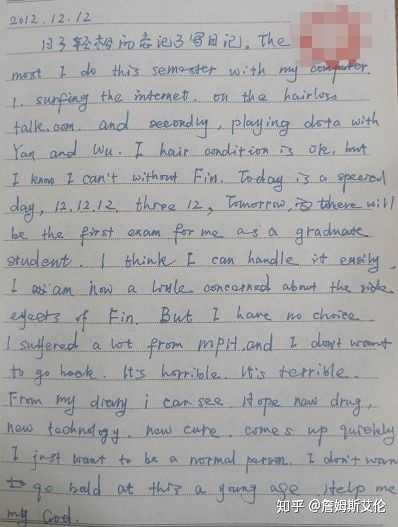 2012.12.12
日子轻松的忘记了写日记. The
most I do this semester with my computer.
1. surfing the internet. on the hairloss
talk.com. and secondly, playing dota with
Yan and Wu. I hair condition is ok. but
I know I can't without Fin. Today is a speecial
day, 12.12.12. three 12, Tomorrow, is there will
be the first exam for me as a graduate
student. I think I can handle it easily.
I am now a little concerned about the side
effects of Fin. But I have no choice
I suffered a lot from MPH. and I don't want
to go back. It's horrible. It's terrible.
From my diary i can see. Hope new drug,
new technology. new cure. comes up quickly
I just want to be a normal person. I don't wan
to go bald at this a young age. Help me
my God.
知乎 @詹姆斯艾伦